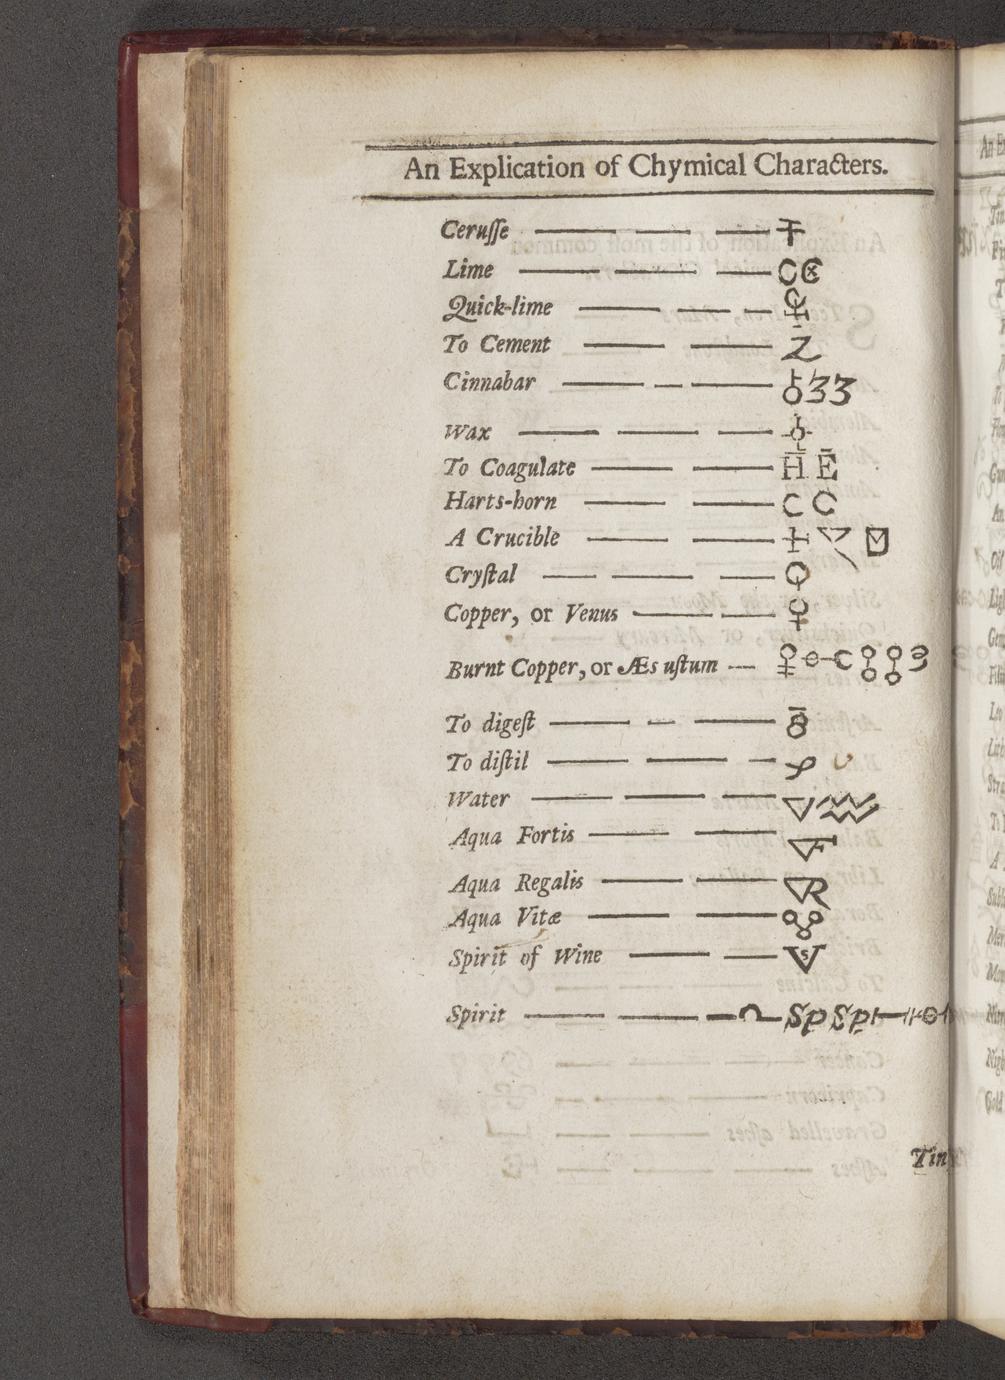 An Explication of Chymical Characters.
Ceruſſe
Lime
Quick-lime
To Cement
Cinnabar
Wax
To Coagulate
Harts-horn
A Crucible
Cryſtal
Copper, or Venus
Burnt Copper, or Æs uſtum
To digeſt
To diſtil
Water
Aqua Fortis
Aqua Regalis
Aqua Vitæ
Spirit of Wine
Spirit Sp Sp
Tin